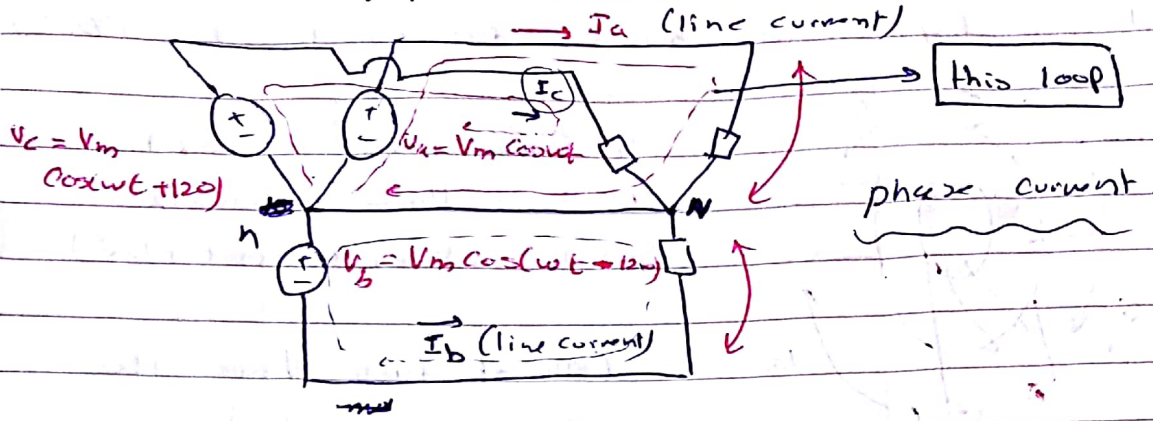 Ia (line current)
this loop
Ic
Vc = Vm
Cos(wt+120)
Va = Vm Coswt
N
phase current
n
Vb = Vm Cos(wt - 120)
Ib (line current)